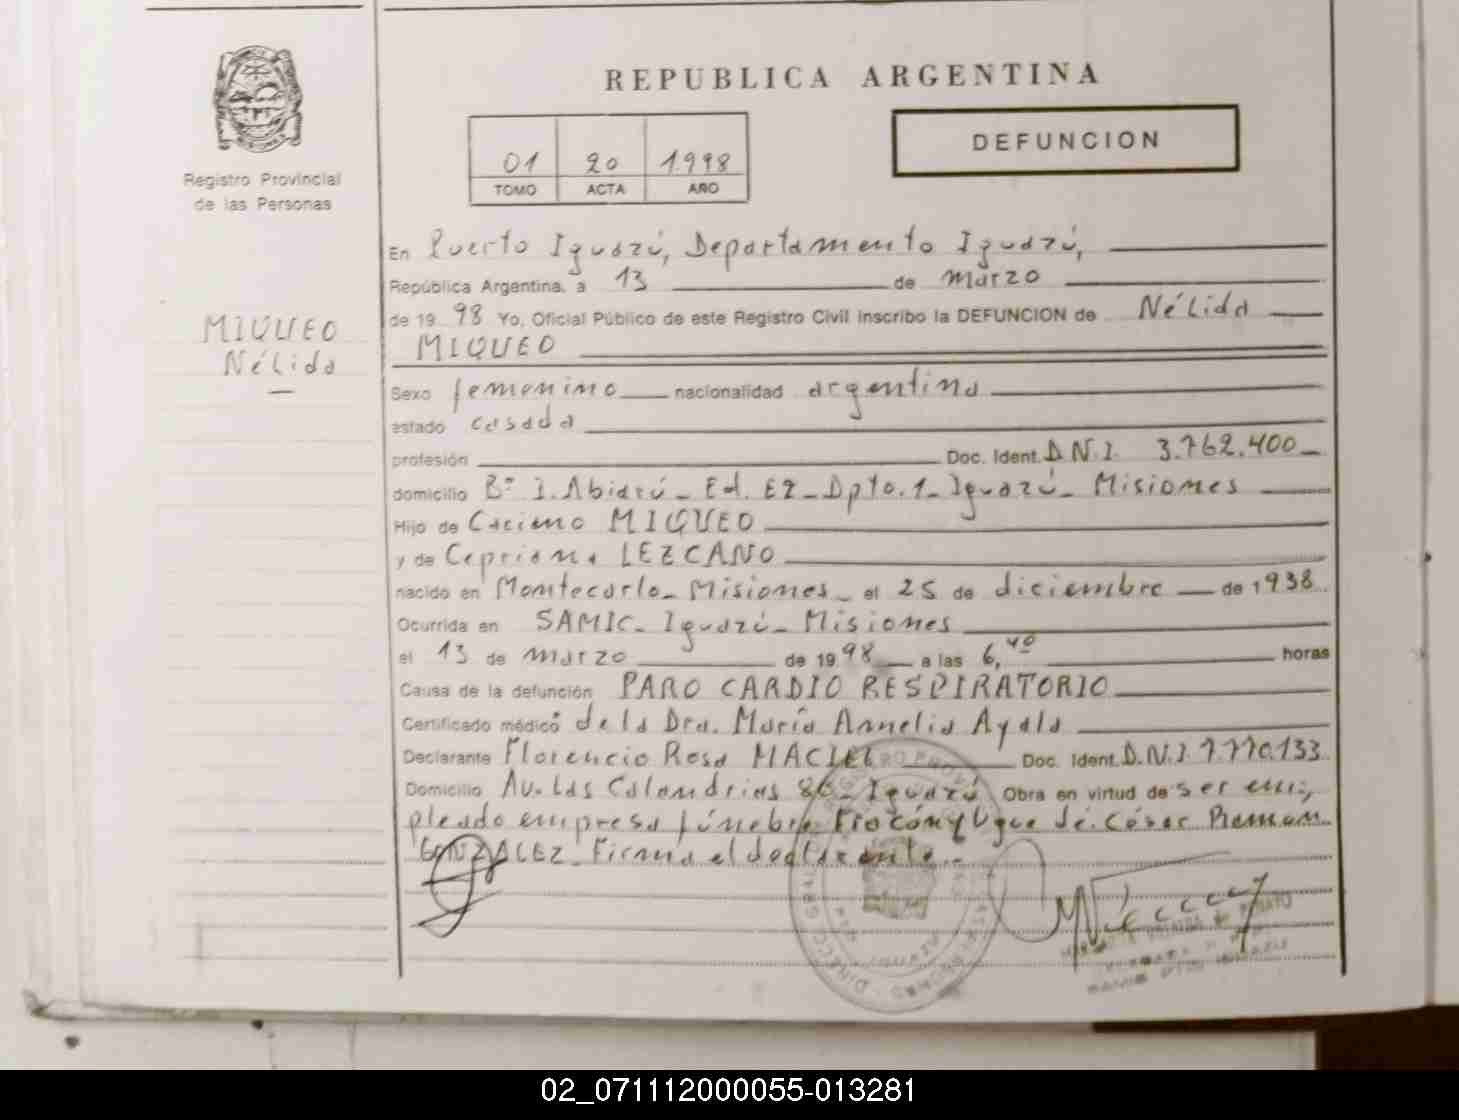 REPUBLICA ARGENTINA
DEFUNCION
01 20 1.998
TOMO ACTA AÑO
Registro Provincial
de las Personas
MIQUEO
Nélida
En Puerto Iguazú, Departamento Iguazú,
República Argentina, a 13 de marzo
de 19 98 Yo, Oficial Público de este Registro Civil inscribo la DEFUNCION de Nélida
MIQUEO
Sexo femenino nacionalidad argentina
estado casada
profesión Doc. Ident. D.N.I. 3.762.400
domicilio B° 1. Abiarú - Ed. E2 - Dpto. 1 - Iguazú - Misiones
Hijo de Casiano MIQUEO
y de Cepriana LEZCANO
nacido en Montecarlo - Misiones - el 25 de diciembre de 1938
Ocurrida en SAMIC - Iguazú - Misiones
el 13 de marzo de 19 98 a las 6,40 horas
Causa de la defunción PARO CARDIO RESPIRATORIO
Certificado médico de la Dra. María Annelia Ayala
Declarante Florencio Rosa MACIEL Doc. Ident. D.N.I. 7.770.133
Domicilio Av. Las Calandrias 86 - Iguazú Obra en virtud de ser em-
pleado empresa fúnebre César Ramon
GONZALEZ - Firma el declarante -
02_071112000055-013281